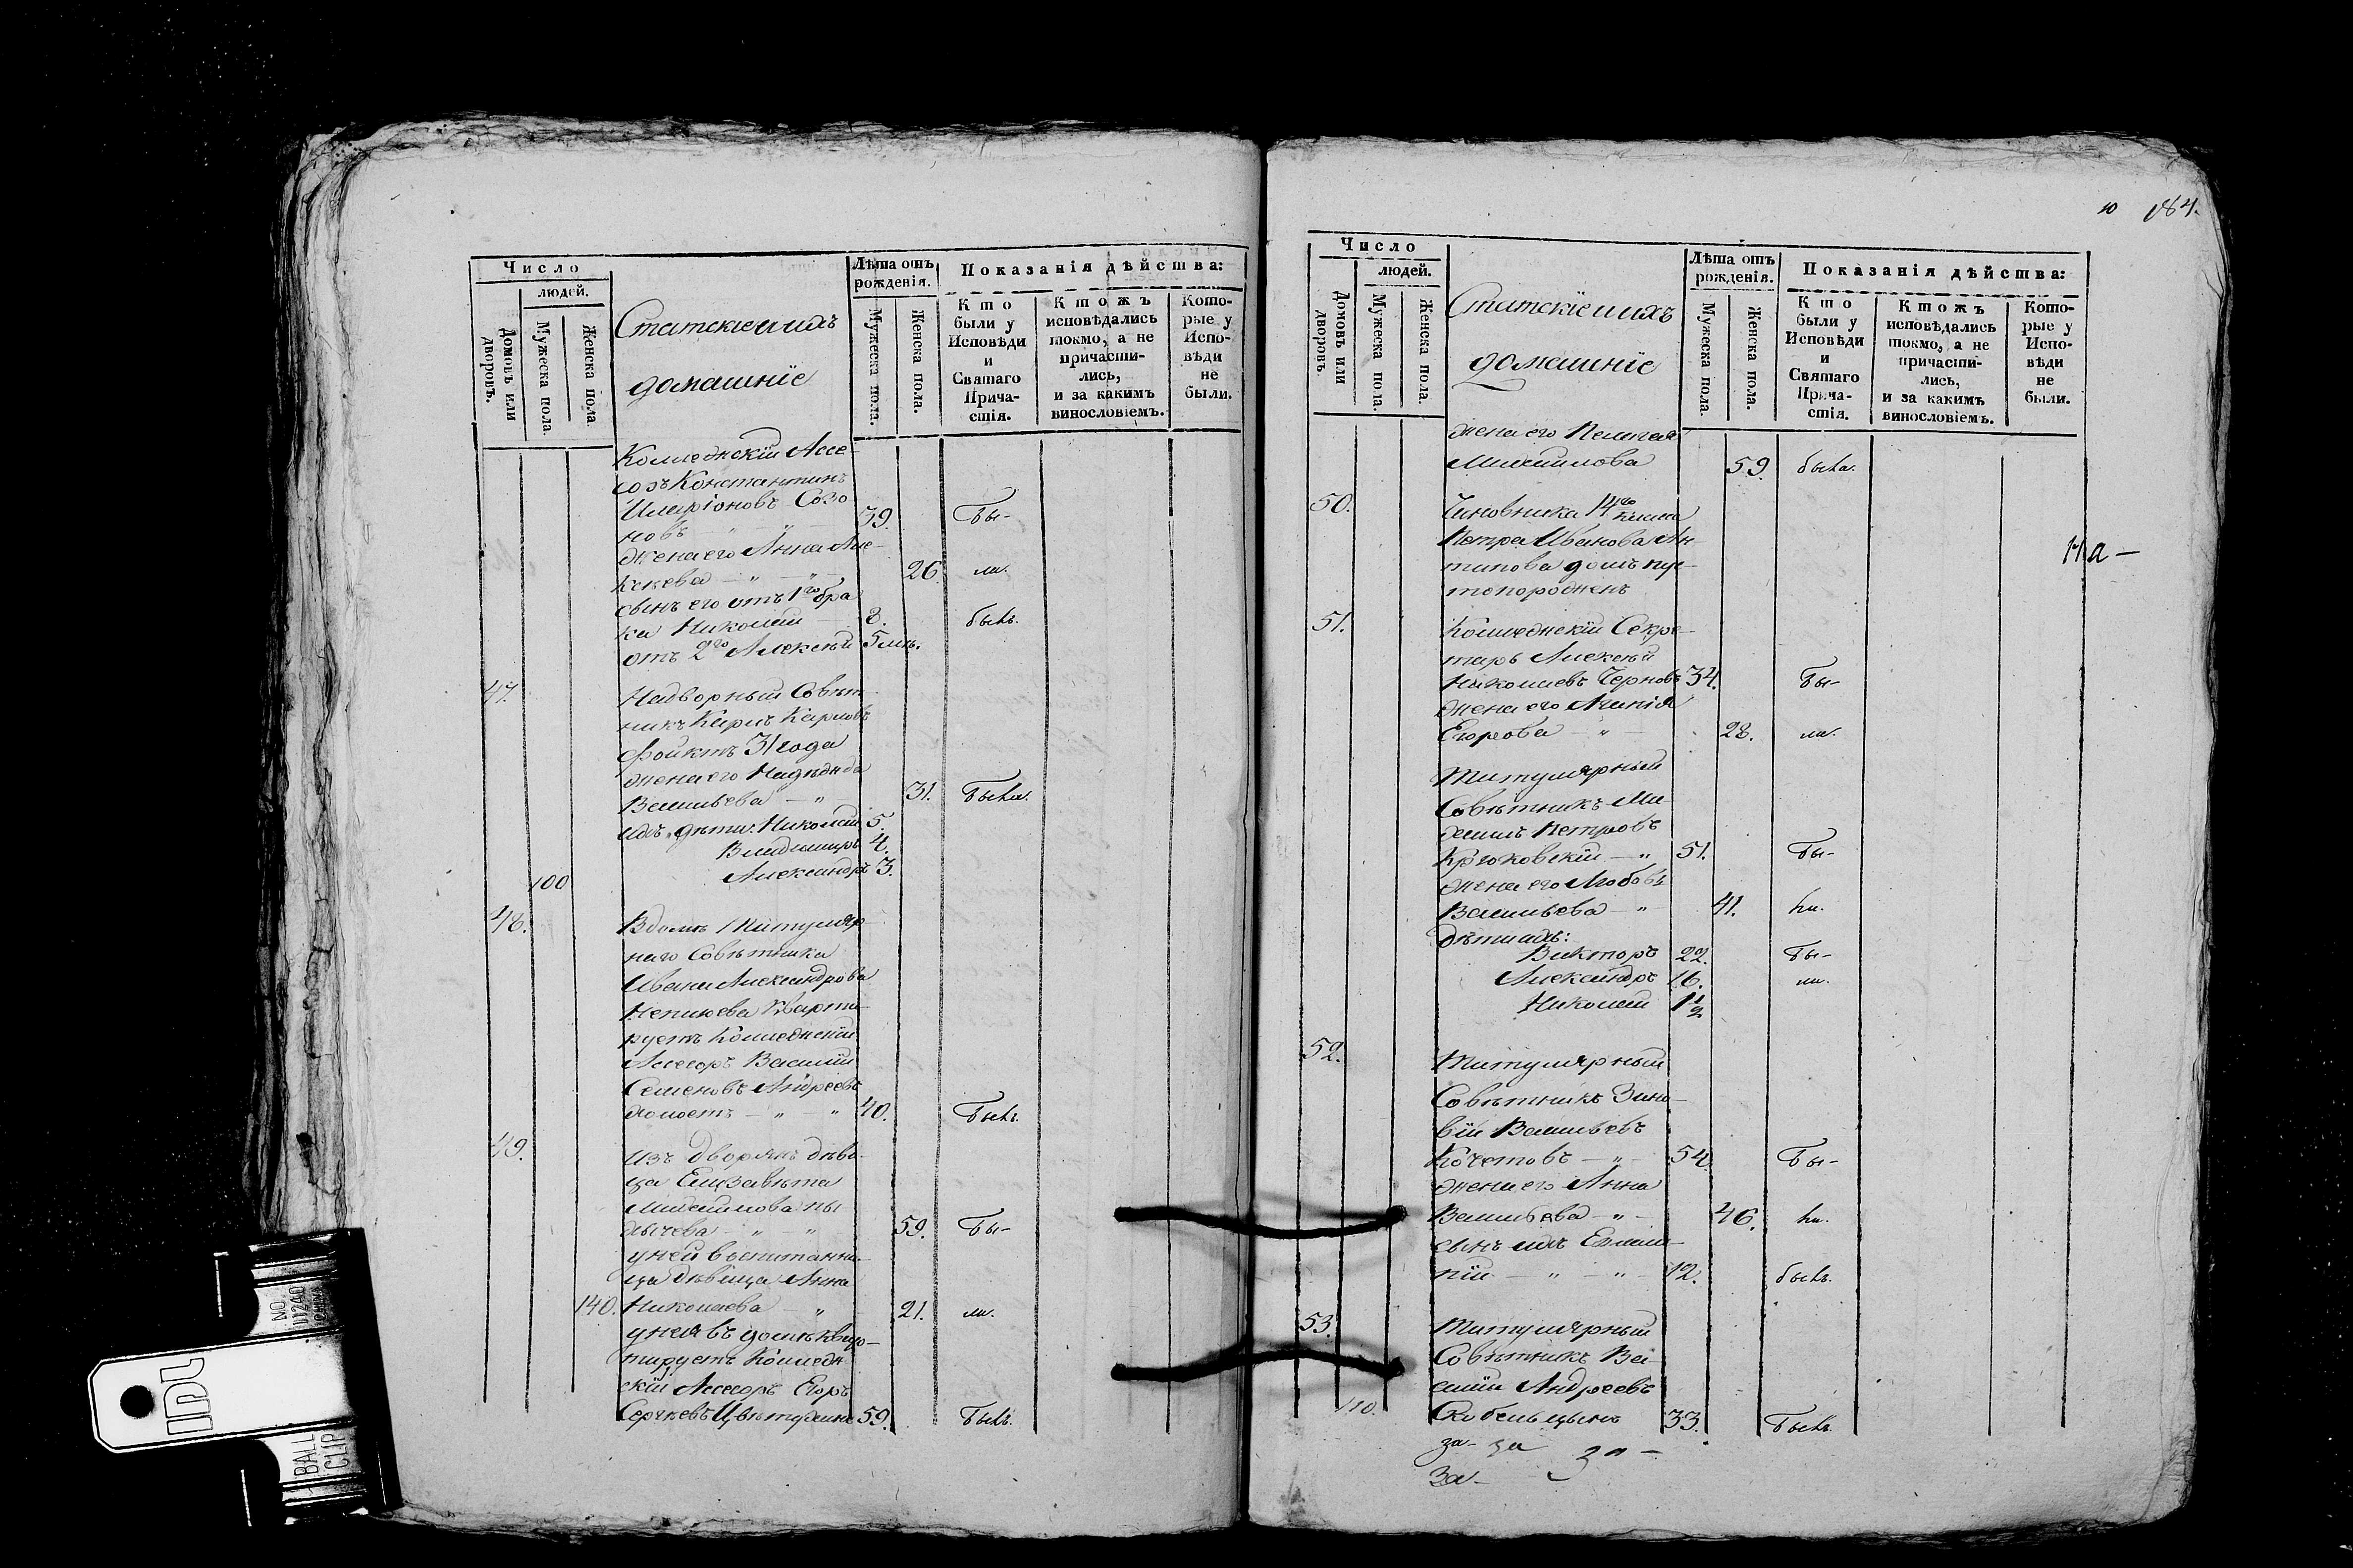 Число
людей.
Домовъ или дворовъ.
Мужеска пола.
Женска пола.
Статские и ихъ
домашнïе
Лѣта отъ
рожденія.
Мужеска пола.
Женска пола.
Показанія дѣйства:
Кто
были у
Исповѣди
и
Святаго
Прича-
стія.
Ктожъ
исповѣдались
токмо, а не
причасти-
лись,
и за какимъ
винословіемъ.
Кото-
рые у
Испо-
вѣди
не
были.
Коллежскïй Ассе-
соръ Константинъ
Иларïоновъ Созо
новъ 39. Бы-
жена его Анна Але-
ксѣева 26. ли.
сынъ его отъ 1го бра
ка Николай 8. былъ.
отъ 2го Алексѣй 5 мѣ.
47. Надворный Совѣт
никъ Карлъ Карловъ
Фойктъ 31 года
жена его Надѣжда
Васильева 31. Была.
ихъ дѣти: Николай 5.
Владимиръ 4.
Александръ 3.
100
48. Вдомѣ Титуляр
наго Совѣтника
Ивана Александрова
Неплюева кварти
руетъ Коллежскïй
Ассесоръ Василïй
Семеновъ Андреевъ
холостъ 40. Былъ.
49. Изъ дворянъ дѣви
ца Елизавѣта
Михайлова
59. Бы-
у ней воспитанни-
ца дѣвица Анна
140. Николаева 21. ли.
у нея въ домѣ квар-
тируетъ Коллеж
скïй Ассесоръ Егоръ
Сергѣевъ 59. Былъ.
10 184.
Число
людей.
Домовъ или дворовъ.
Мужеска пола.
Женска пола.
Статскïе и ихъ
домашнïе
Лѣта отъ
рожденія.
Мужеска пола.
Женска пола.
Показанія дѣйства:
Кто
были у
Исповѣди
и
Святаго
Прича-
стія.
Ктожъ
исповѣдались
токмо, а не
причасти-
лись,
и за какимъ
винословіемъ.
Кото-
рые у
Испо-
вѣди
не
были.
жена его Пелагея
Михайлова 59. была.
50. Чиновника 14го класса
Петра Иванова Ан
типова домъ пус-
топорожженъ
На-
51. Коллежскïй Секре-
тарь Алексѣй
Николаевъ Черновъ 34. Бы-
жена его
Егорова 28. ли.
Титулярный
Совѣтникъ Ми-
хаилъ Петровъ
Крюковскïй 51. Бы-
жена его Любовь
Васильева 41. ли.
дѣти ихъ:
Викторъ 22. Бы-
Александръ 16. ли.
Николай 1 1/2
52. Титулярный
Совѣтникъ Зино-
вïй Васильевъ
Кочетовъ 54. Бы-
жена его Анна
Васильева 46. ли.
сынъ ихъ Евлам-
пïй 12. былъ.
53. Титулярный
Совѣтникъ Ва-
силïй Андреевъ
110. Скобельцынъ 33. Былъ.
за- за за-
За-
NO.
BALL
CLIP